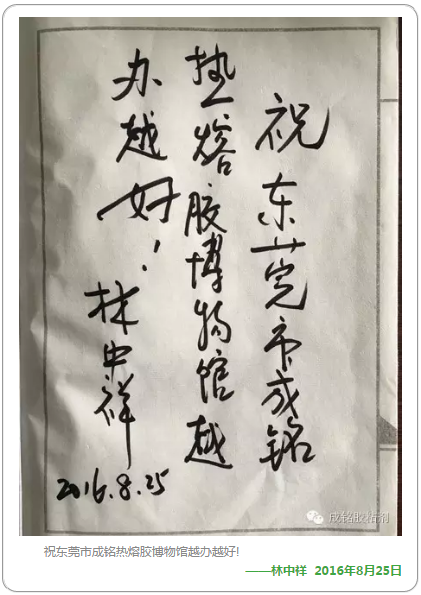 祝东莞市成铭
热熔胶博物馆越
办越好！
林中祥
2016.8.25
成铭胶粘剂
祝东莞市成铭热熔胶博物馆越办越好!
——林中祥 2016年8月25日